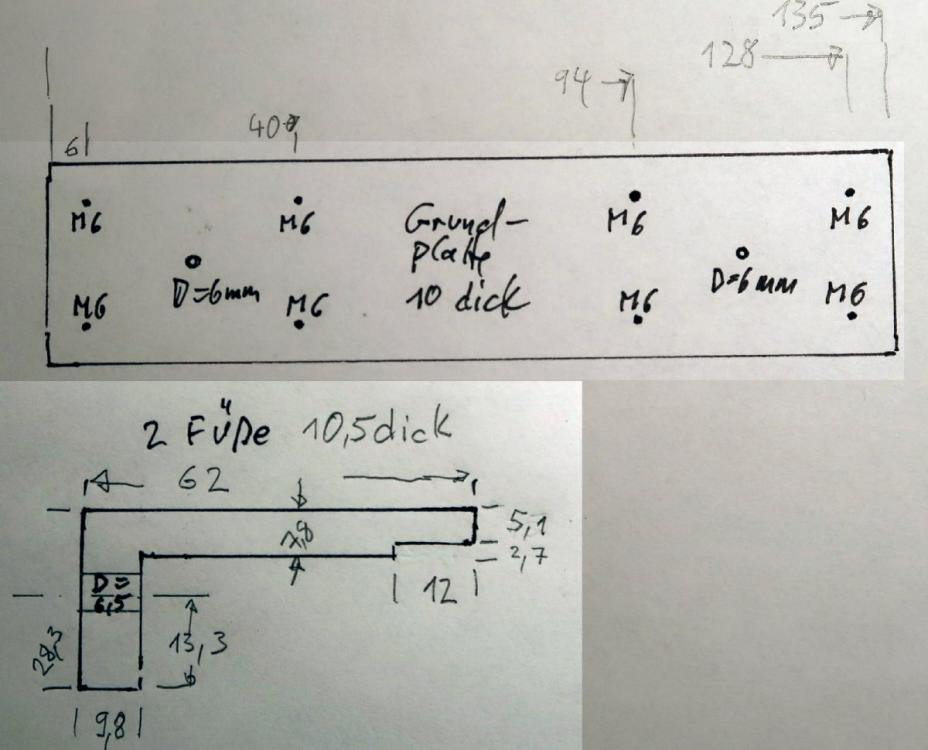 135
128
94
40
6
M6 M6 Grund- M6 M6
platte
D=6mm D=6mm
M6 M6 10 dick M6 M6
2 Füße 10,5 dick
62
5,1
7,8
2,7
12
D=
6,5
13,3
28,3
9,8